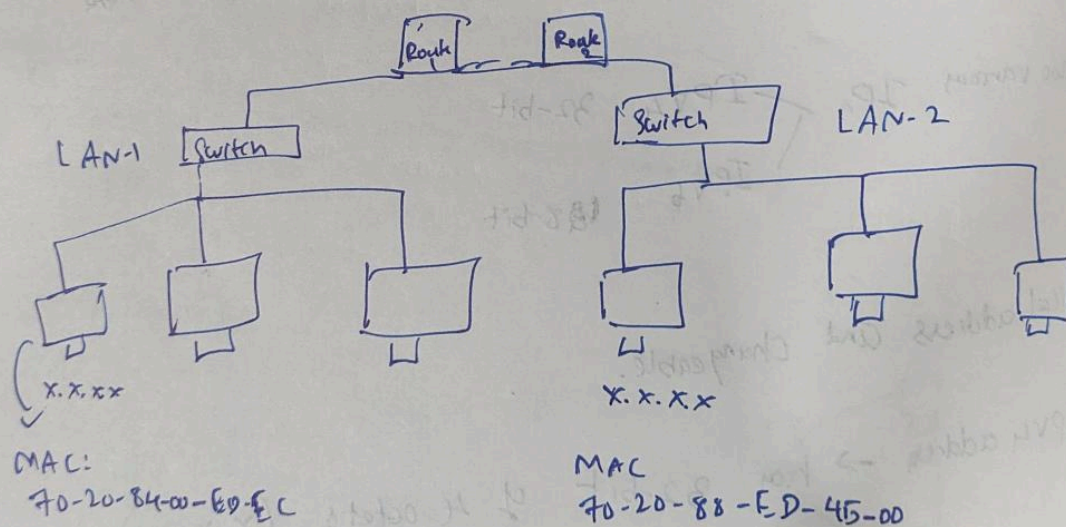 Route
1
Route
2
LAN-1
Switch
Switch
LAN-2
x.x.x.x
x.x.x.x
MAC:
70-20-84-00-ED-EC
MAC
70-20-88-ED-45-00